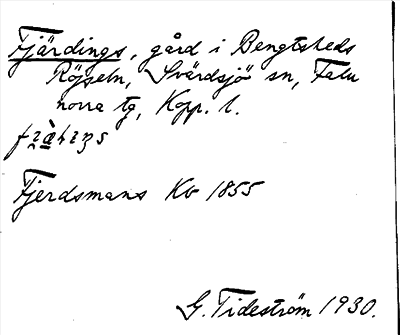 Fjärdings, gård i Bengtsheds
Röjseln, Svärdsjö sn, Falu
norra tg, Kopp. l.
Fjerdsmans Kv 1855
G. Tideström 1930.